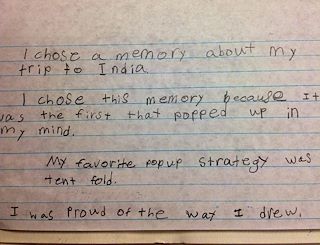 I chose a memory about my
trip to India.
I chose this memory because It
was the first that popped up in
my mind.
My favorite popup strategy was
tent fold.
I was Proud of the way I drew.